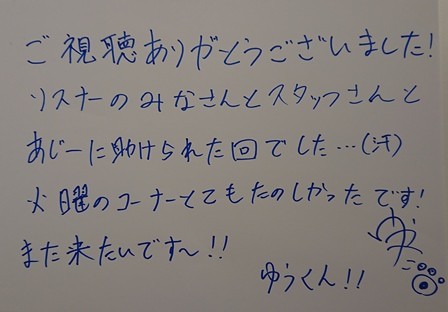 ご視聴ありがとうございました!
リスナーのみなさんとスタッフさんと
あじーに助けられた回でした…(汗)
火曜のコーナーとてもたのしかったです!
また来たいです〜!!
ゆうくん!!